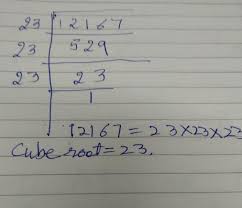 23 | 12167
23 | 529
23 | 23
1
12167 = 23×23×23
Cube root = 23.